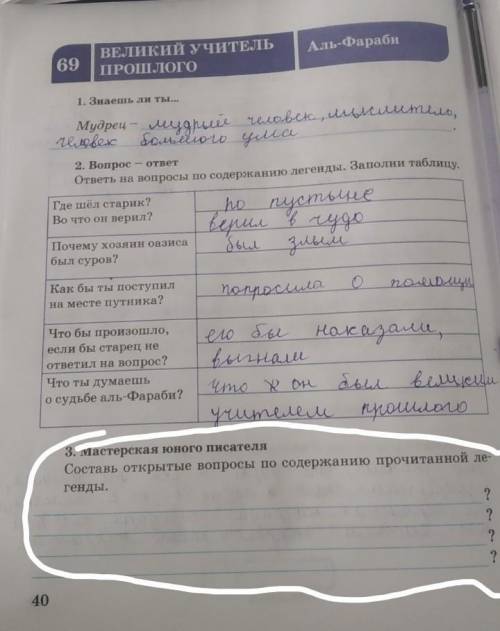 69
ВЕЛИКИЙ УЧИТЕЛЬ
ПРОШЛОГО
Аль-Фараби
1. Знаешь ли ты...
Мудрец – мудрый человек, мыслитель,
человек большого ума.
2. Вопрос – ответ
Ответь на вопросы по содержанию легенды. Заполни таблицу.
Где шёл старик?
Во что он верил?
по пустыне
верил в чудо
Почему хозяин оазиса
был суров?
был злым
Как бы ты поступил
на месте путника?
попросила о помощи
Что бы произошло,
если бы старец не
ответил на вопрос?
его бы наказали,
выгнали
Что ты думаешь
о судьбе аль-Фараби?
что он был великим
учителем прошлого
3. Мастерская юного писателя
Составь открытые вопросы по содержанию прочитанной ле-
генды.
?
?
?
?
40